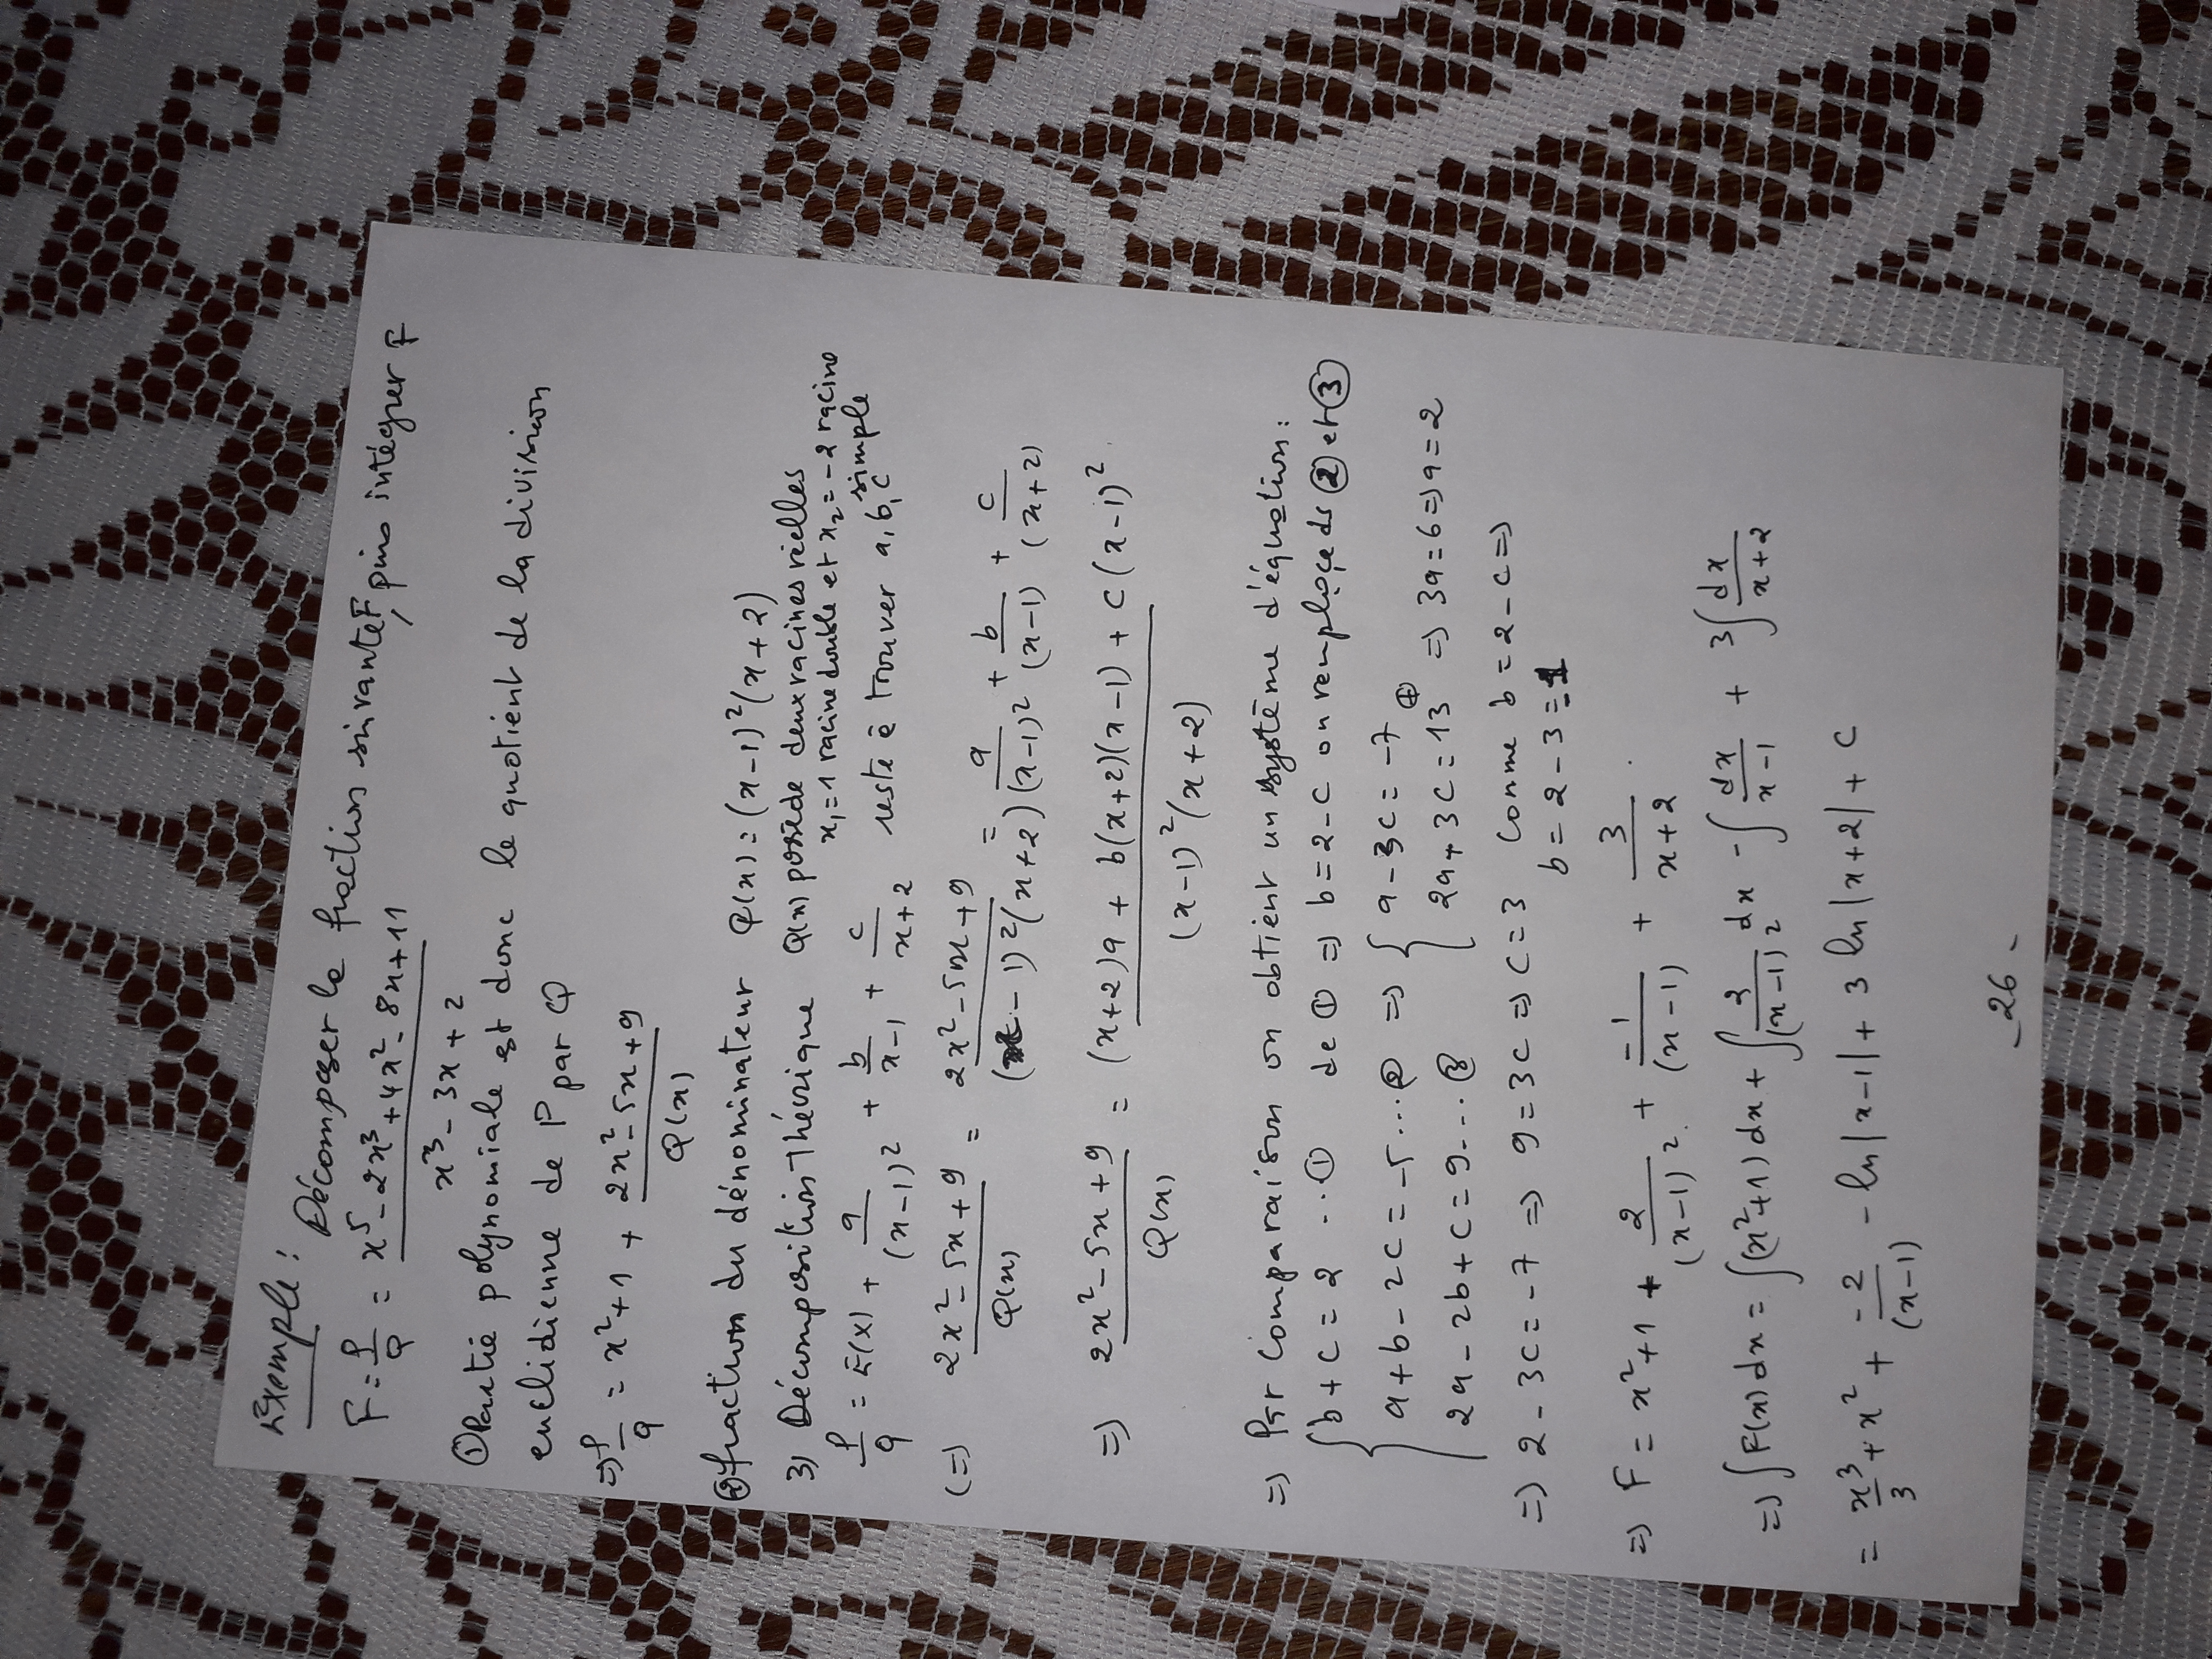 Exemple : Décomposer la fraction suivante F, puis intégrer F
F = P/Q = (x⁵ - 2x³ + 4x² - 8x + 11)/(x³ - 3x + 2)
① Partie polynomiale est donc le quotient de la division
euclidienne de P par Q
=> P/Q = x² + 1 + (2x² - 5x + 9)/Q(x)
② fraction du dénominateur Q(x) = (x-1)²(x+2)
3) Décomposition Théorique Q(x) posséde deux racines réelles
x₁ = 1 racine double et x₂ = -2 racine simple
P/Q = E(x) + a/(x-1)² + b/(x-1) + c/(x+2) reste à trouver a, b, c
(=) (2x² - 5x + 9)/Q(x) = (2x² - 5x + 9)/((x-1)²(x+2)) = a/(x-1)² + b/(x-1) + c/(x+2)
=> (2x² - 5x + 9)/Q(x) = ((x+2)a + b(x+2)(x-1) + c(x-1)²)/((x-1)²(x+2))
=> Par Comparaison on obtient un système d'équation :
{ b + c = 2 .. ① de ① => b = 2 - c on remplace ds ② et ③
a + b - 2c = -5 ... ② => { a - 3c = -7
2a - 2b + c = 9 ... ③ 2a + 3c = 13 ④ => 3a = 6 => a = 2
=> 2 - 3c = -7 => 9 = 3c => c = 3 Comme b = 2 - c =>
b = 2 - 3 = -1
=> F = x² + 1 + 2/(x-1)² + -1/(x-1) + 3/(x+2) .
=> ∫F(x)dx = ∫(x²+1)dx + ∫2/(x-1)² dx - ∫dx/(x-1) + 3∫dx/(x+2)
= x³/3 + x² + -2/(x-1) - ln|x-1| + 3 ln|x+2| + C
- 26 -